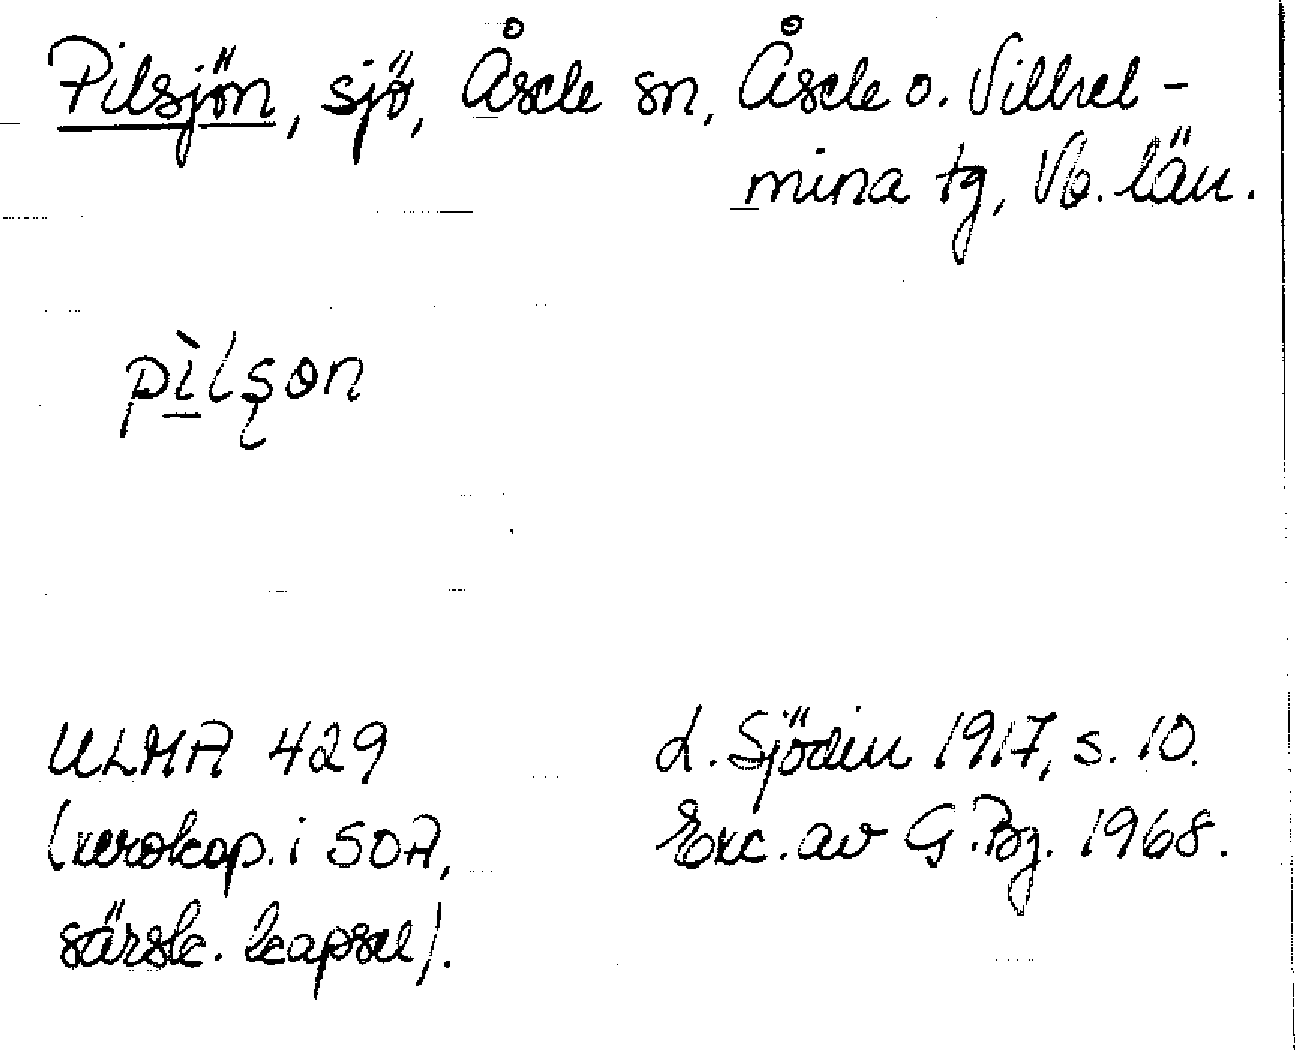 Pilsjön, sjö, Åsele sn, Åsele o. Vilhel-
mina tg, Vb. län.
ULMA 429
L. Sjödin 1917, s. 10.
(xerokop. i SOA,
Exc. av G. Bg. 1968.
särsk. kapsel).